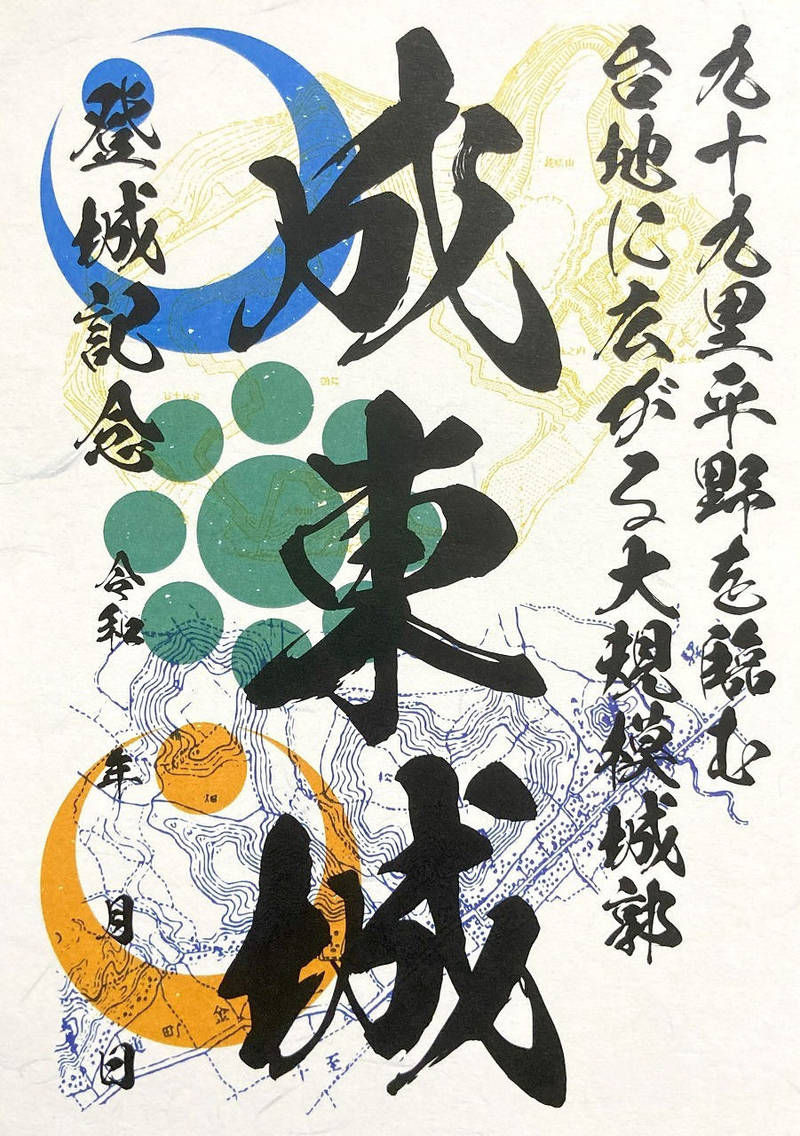 九十九里平野を臨む
台地に広がる大規模城郭
成東城
登城記念
令和 年 月 日
畑
金
町
至